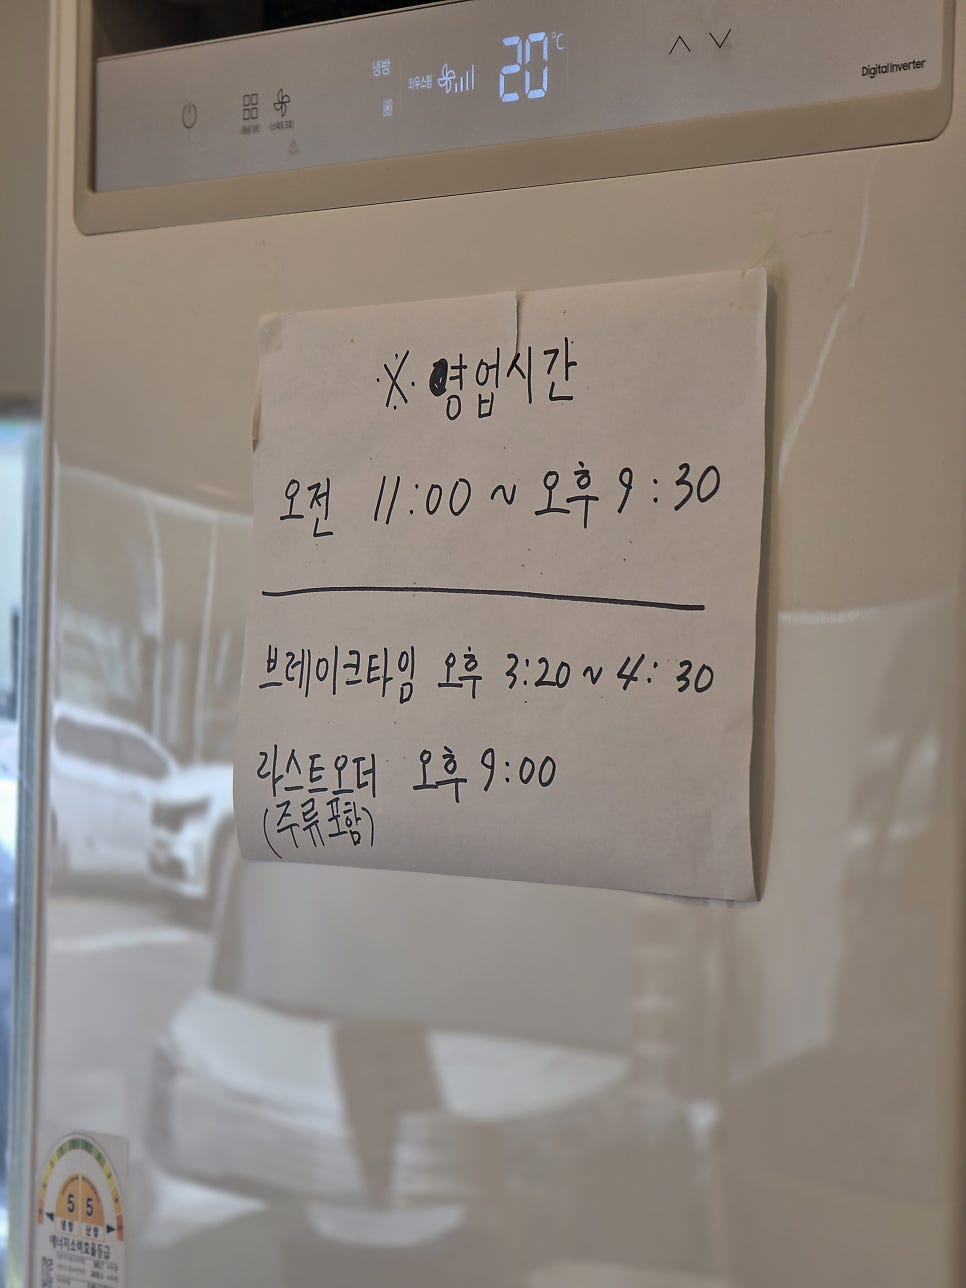 냉방
파워스윙
20°C
Digital Inverter
※ 영업시간
오전 11:00 ~ 오후 9:30
브레이크타임 오후 3:20 ~ 4:30
라스트오더 오후 9:00
(주류포함)
5 5
냉방 난방
에너지소비효율등급